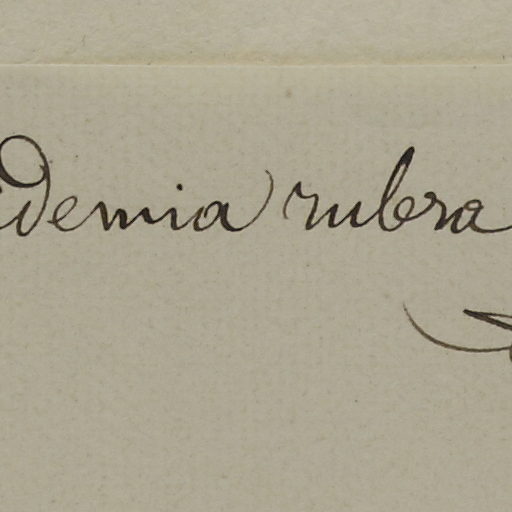 demia rubra